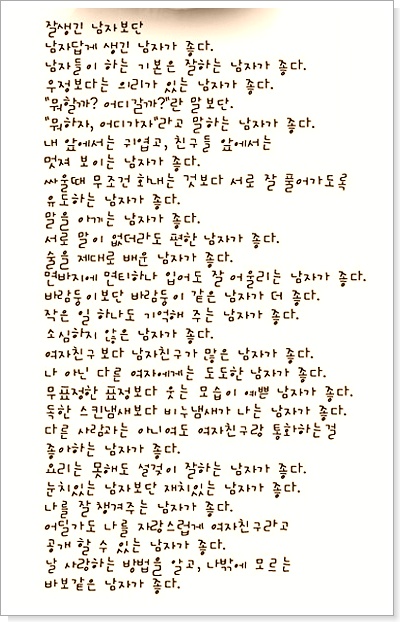 잘생긴 남자보단
남자답게 생긴 남자가 좋다.
남자들이 하는 기본은 잘하는 남자가 좋다.
우정보다는 의리가 있는 남자가 좋다.
"뭐할까? 어디갈까?"란 말보단.
"뭐하자, 어디가자"라고 말하는 남자가 좋다.
내 앞에서는 귀엽고, 친구들 앞에서는
멋져 보이는 남자가 좋다.
싸울때 무조건 화내는 것보다 서로 잘 풀어가도록
유도하는 남자가 좋다.
말을 아끼는 남자가 좋다.
서로 말이 없더라도 편한 남자가 좋다.
술을 제대로 배운 남자가 좋다.
면바지에 면티하나 입어도 잘 어울리는 남자가 좋다.
바람둥이보단 바람둥이 같은 남자가 더 좋다.
작은 일 하나도 기억해 주는 남자가 좋다.
소심하지 않은 남자가 좋다.
여자친구보다 남자친구가 많은 남자가 좋다.
나 아닌 다른 여자에게는 도도한 남자가 좋다.
무표정한 표정보다 웃는 모습이 예쁜 남자가 좋다.
독한 스킨냄새보다 비누냄새가 나는 남자가 좋다.
다른 사람과는 아니여도 여자친구랑 통화하는걸
좋아하는 남자가 좋다.
요리는 못해도 설겆이 잘하는 남자가 좋다.
눈치있는 남자보단 재치있는 남자가 좋다.
나를 잘 챙겨주는 남자가 좋다.
어딜가도 나를 자랑스럽게 여자친구라고
공개 할 수 있는 남자가 좋다.
날 사랑하는 방법을 알고, 나밖에 모르는
바보같은 남자가 좋다.